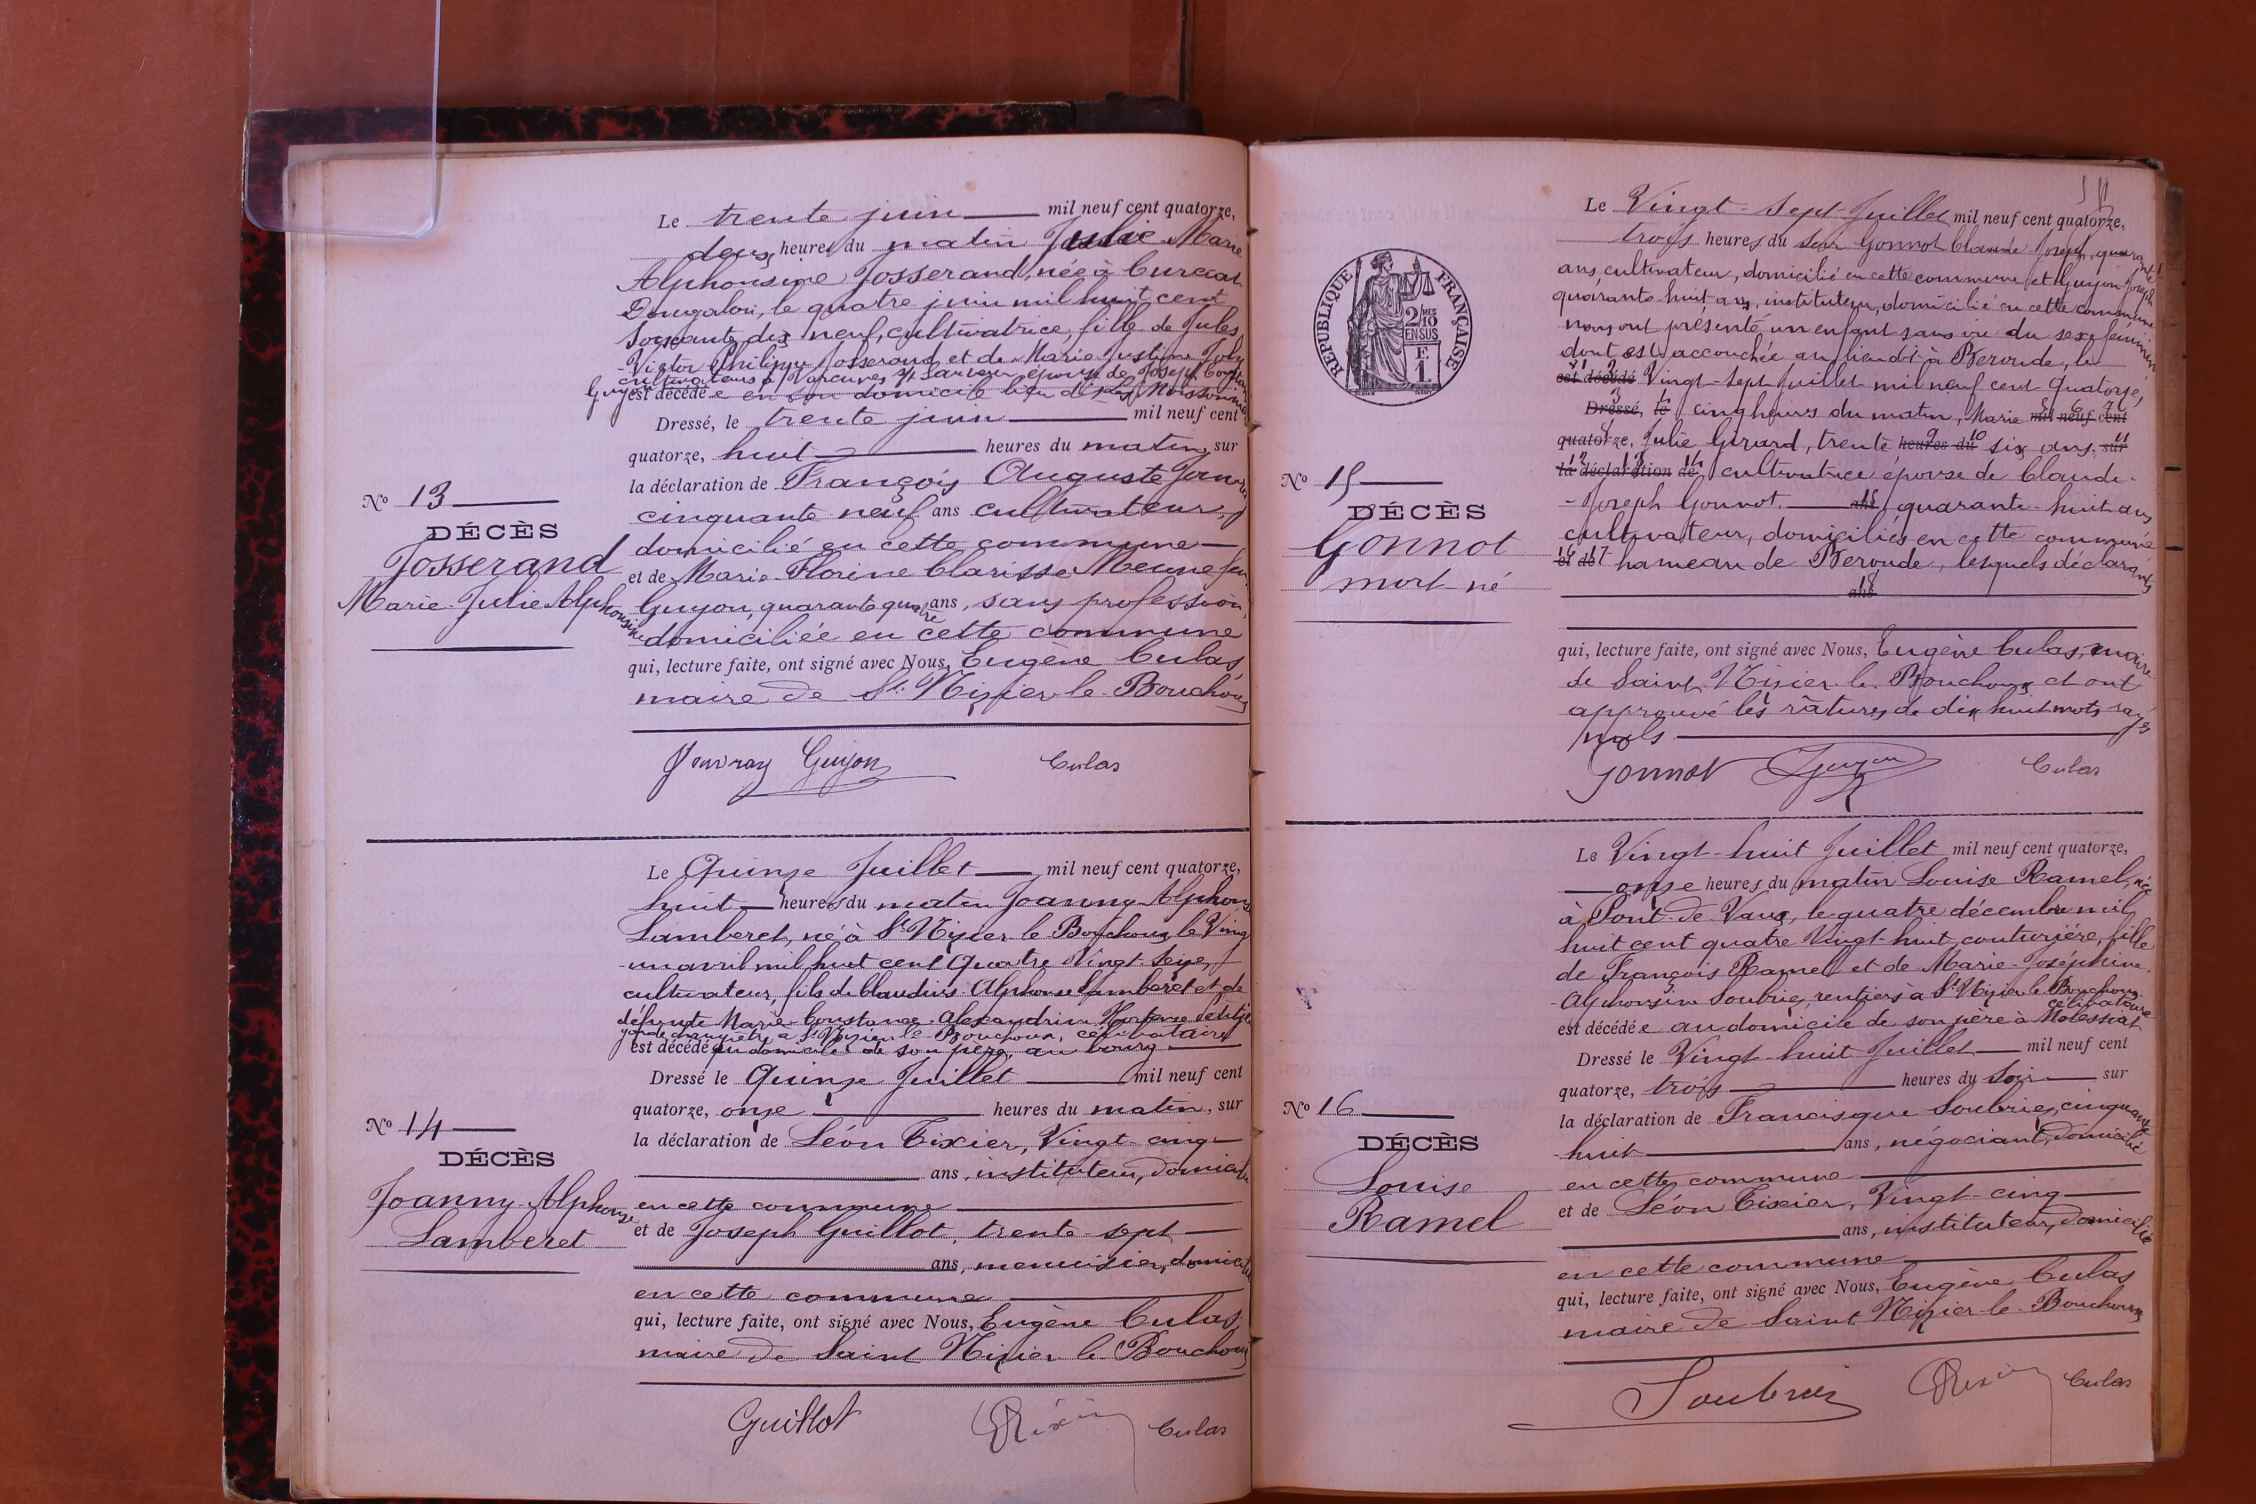 Le trente juin mil neuf cent quatorze,
deux heures du matin Julie Marie
Alphonsine Josserand, née à Curciat
Dongalon, le quatre juin mil huit cent
soixante dix neuf, cultivatrice, fille de Jules
Victor Philippe Josserand et de Marie Justine Joly
cultivateurs à Varennes St Sauveur, épouse de Joseph
Guyon est décédée en son domicile lieu dit
Dressé, le trente juin mil neuf cent
quatorze, huit heures du matin, sur
la déclaration de François Auguste
cinquante neuf ans cultivateur,
domicilié en cette commune
et de Marie Florine Clarisse Meune
Guyon, quarante quatre ans, sans profession,
domiciliée en cette commune
qui, lecture faite, ont signé avec Nous, Eugène Culas,
maire de St Nizier le Bouchoux
Guyon Culas
No 13
DÉCÈS
Josserand
Marie Julie Alphonsine
Le Quinze Juillet mil neuf cent quatorze,
huit heures du matin Joanny Alphonse
Lamberet, né à St Nizier le Bouchoux, le Vingt
un avril mil huit cent Quatre Vingt Seize,
cultivateur, fils de Claudius Alphonse Lamberet et de
défunte Marie Constance Alexandrine Hortense
à St Nizier le Bouchoux, célibataire
est décédé au domicile de son père, au bourg
Dressé le Quinze Juillet mil neuf cent
quatorze, onze heures du matin, sur
la déclaration de Léon Tixier, Vingt cinq
ans, instituteur, domicilié
en cette commune
et de Joseph Guillot, trente sept
ans, menuisier, domicilié
en cette commune
qui, lecture faite, ont signé avec Nous, Eugène Culas,
maire de Saint Nizier le Bouchoux
Guillot Tixier Culas
No 14
DÉCÈS
Joanny Alphonse
Lamberet
Le Vingt-sept Juillet mil neuf cent quatorze,
trois heures du soir Gonnot Claude Joseph, quarante huit
ans, cultivateur, domicilié en cette commune et Guyon Joseph
quarante huit ans, instituteur, domicilié en cette commune
nous ont présenté un enfant sans vie du sexe féminin
dont est accouchée au lieu dit à Beroude, le
est décédé Vingt-sept Juillet mil neuf cent Quatorze,
Dressé, le cinq heures du matin, Marie mil neuf cent
quatorze, Julie Girard, trente heures du six ans, sur
la déclaration de, cultivatrice épouse de Claude
Joseph Gonnot. ans quarante huit ans
cultivateur, domiciliés en cette commune
et de hameau de Beroude, lesquels déclarants
ans
qui, lecture faite, ont signé avec Nous, Eugène Culas, maire
de Saint Nizier le Bouchoux et ont
approuvé les ratures de dix huit mots rayés
nuls
Gonnot Guyon Culas
RÉPUBLIQUE FRANÇAISE
2/10 EN SUS
F 1
No 15
DÉCÈS
Gonnot
mort né
Le Vingt-huit Juillet mil neuf cent quatorze,
onze heures du matin Louise Ramel, née
à Pont-de-Vaux, le quatre décembre mil
huit cent quatre Vingt-huit, couturière, fille
de François Ramel et de Marie-Joséphine
Alphonsine Soubrier, rentiers à St Nizier le Bouchoux
célibataire
est décédée au domicile de son père à Molessiat
Dressé le Vingt huit Juillet mil neuf cent
quatorze, trois heures du soir sur
la déclaration de Francisque Soubrier, cinquante
huit ans, négociant, domicilié
en cette commune
et de Léon Tixier, Vingt-cinq
ans, instituteur, domicilié
en cette commune
qui, lecture faite, ont signé avec Nous, Eugène Culas
maire de Saint Nizier le Bouchoux
Soubrier Tixier Culas
No 16
DÉCÈS
Louise
Ramel